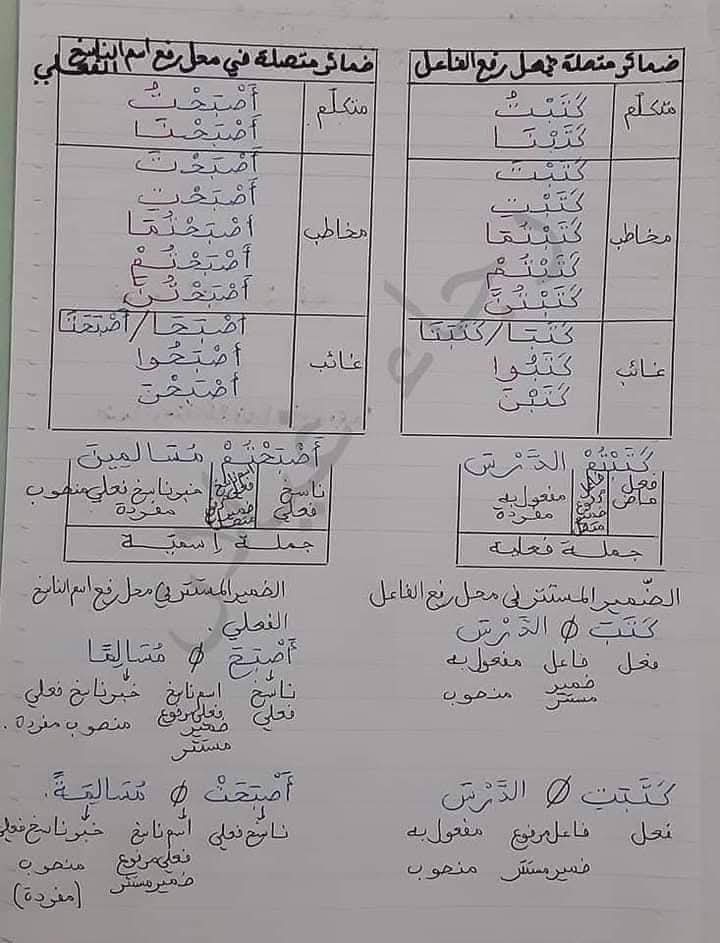 ضمائر متصلة في محل رفع الفاعل
متكلّم
كَتَبْتُ
كَتَبْنَا
مخاطب
كَتَبْتَ
كَتَبْتِ
كَتَبْتُمَا
كَتَبْتُمْ
كَتَبْتُنَّ
غائب
كَتَبَا/كَتَبَتَا
كَتَبُوا
كَتَبْنَ
ضمائر متصلة في محل رفع اسم الناسخ الفعلي
متكلّم
أَصْبَحْتُ
أَصْبَحْنَا
مخاطب
أَصْبَحْتَ
أَصْبَحْتِ
أَصْبَحْتُمَا
أَصْبَحْتُمْ
أَصْبَحْتُنَّ
غائب
أَصْبَحَا/أَصْبَحَتَا
أَصْبَحُوا
أَصْبَحْنَ
كَتَبْتُمْ الدَّرْسَ
فعل ماض
مفعول به
مفردة
جملة فعلية
أَصْبَحْتُمْ مُسَالِمِينَ
ناسخ فعلي
خبر ناسخ فعلي منصوب
مفردة
جملة اسميّة
الضّمير المستتر في محل رفع الفاعل
كَتَبَ Ø الدَّرْسَ
فعل فاعل مفعول به
ضمير مستتر منصوب
كَتَبَتْ Ø الدَّرْسَ
فعل فاعل مرفوع مفعول به
ضمير مستتر منصوب
الضمير المستتر في محل رفع اسم الناسخ
الفعلي.
أَصْبَحَ Ø مُسَالِمًا
ناسخ اسم ناسخ خبر ناسخ فعلي
فعلي فعلي مرفوع منصوب مفردة.
ضمير
مستتر
أَصْبَحَتْ Ø مُسَالِمَةً.
ناسخ فعلي اسم ناسخ خبر ناسخ فعلي
فعلي مرفوع منصوب
ضمير مستتر (مفردة)